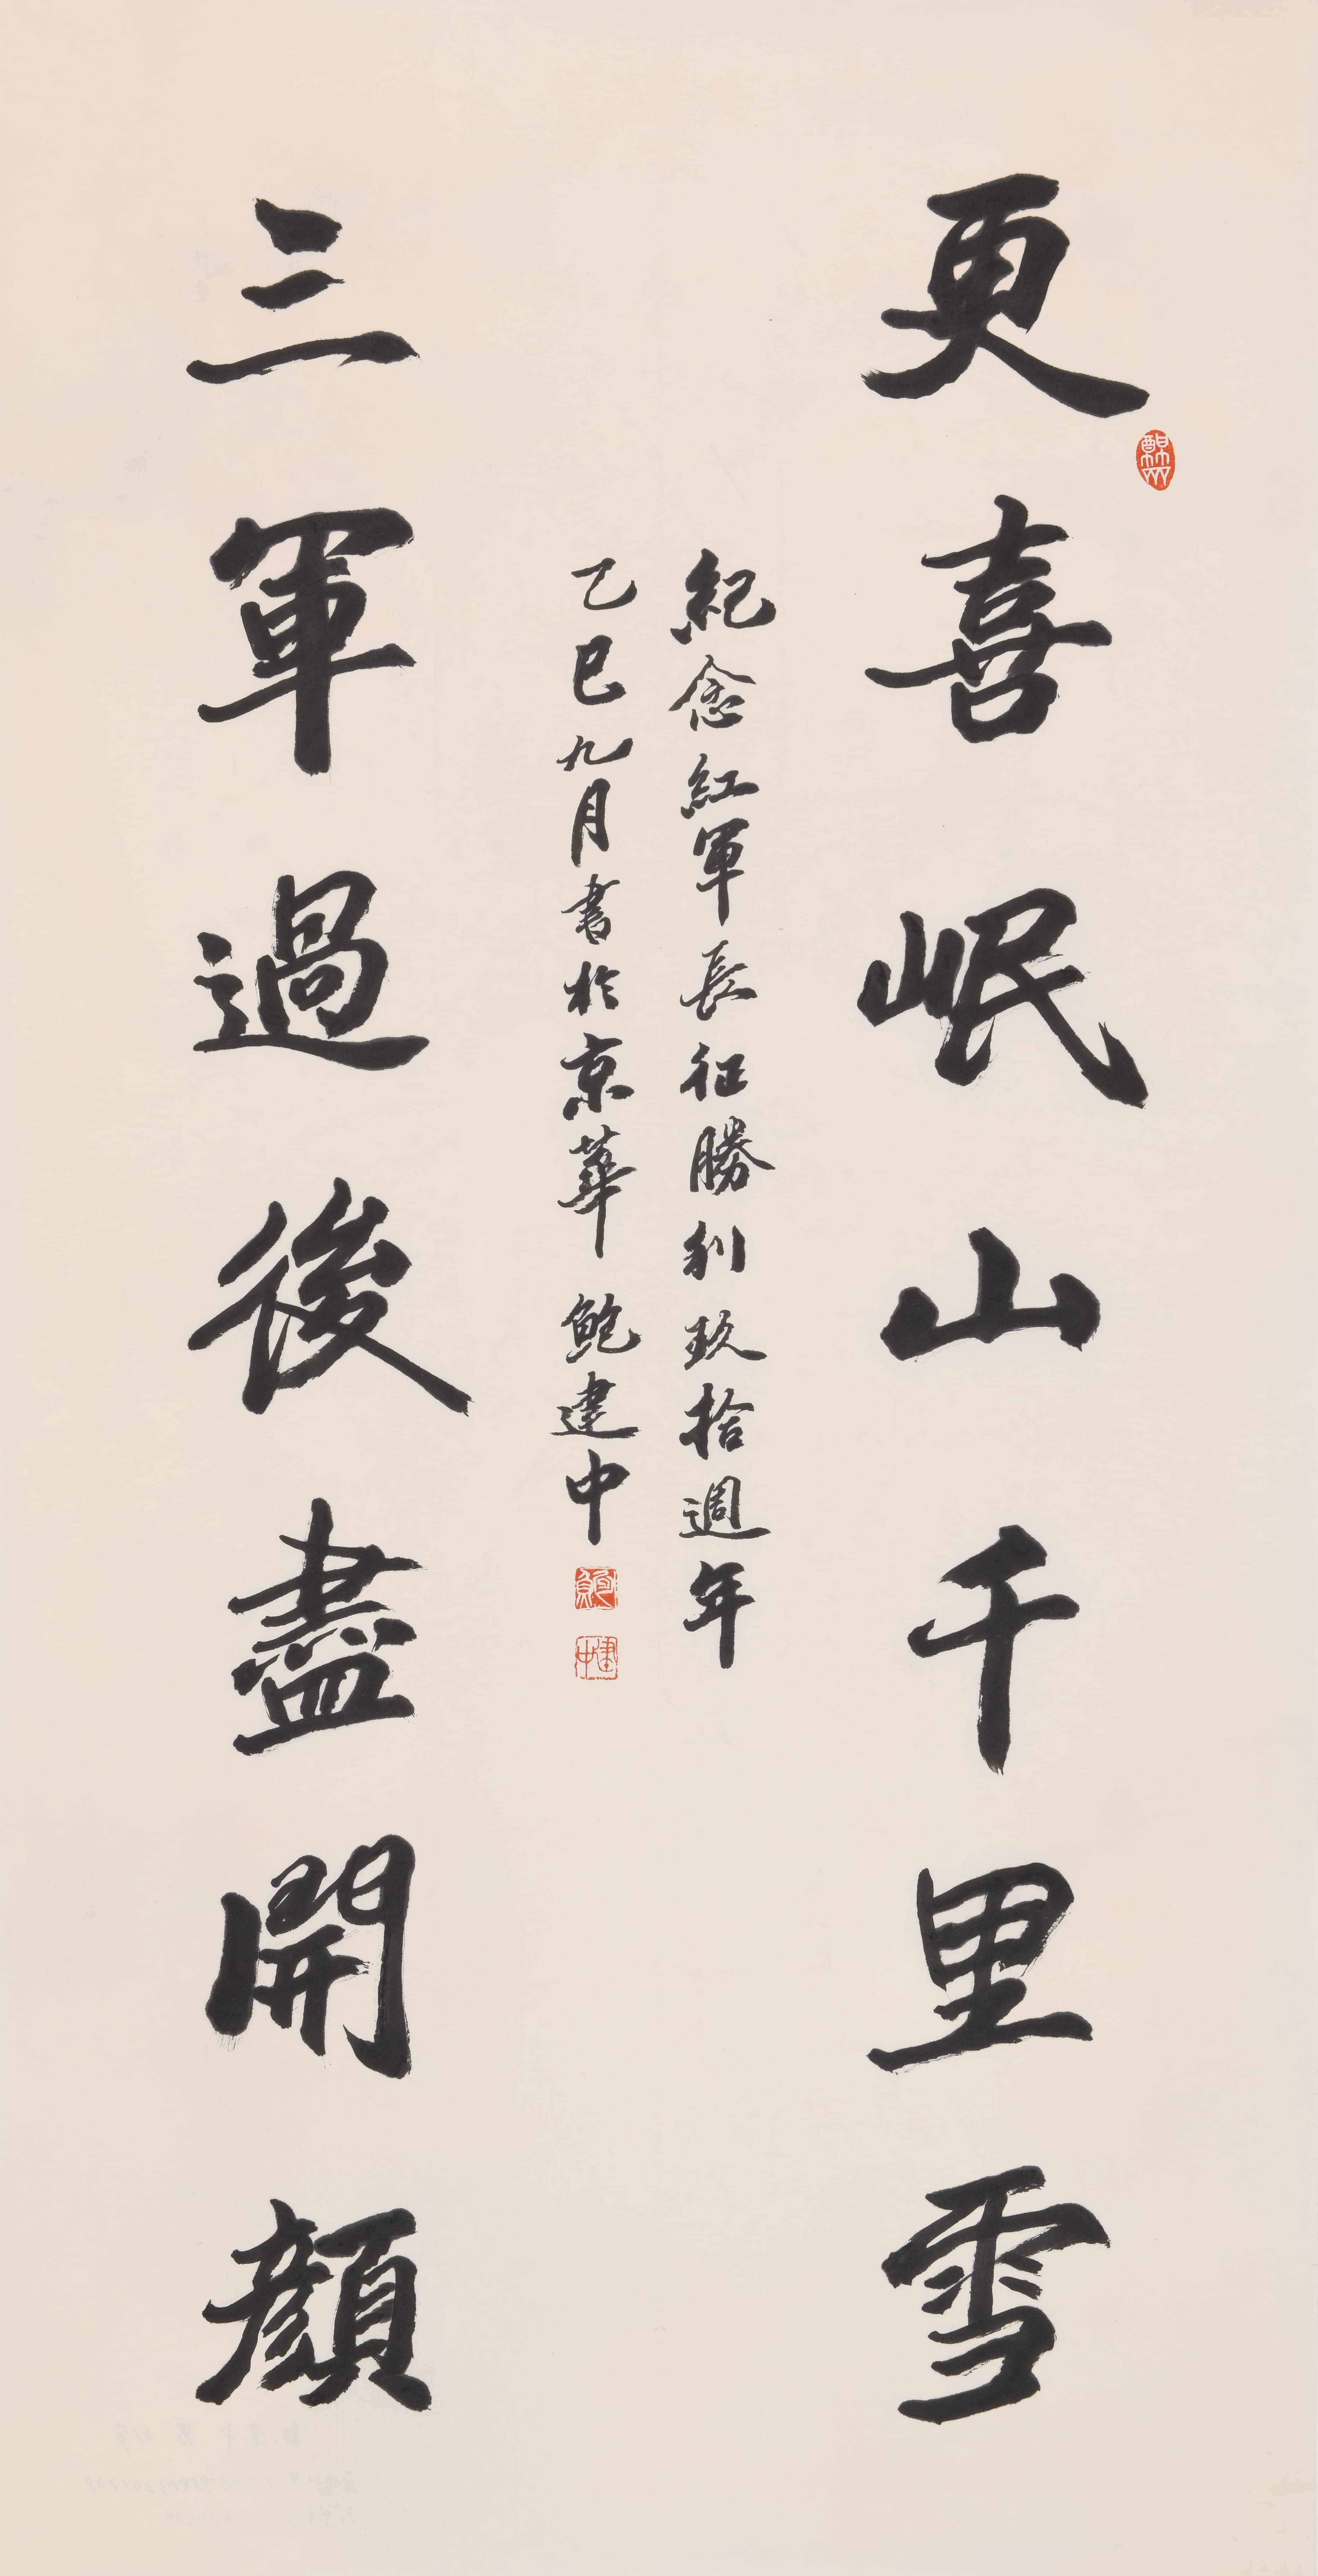 更喜岷山千里雪
紀念紅軍長征勝利玖拾週年
乙巳九月書於京華 鮑建中
鮑
建中
三軍過後盡開顏